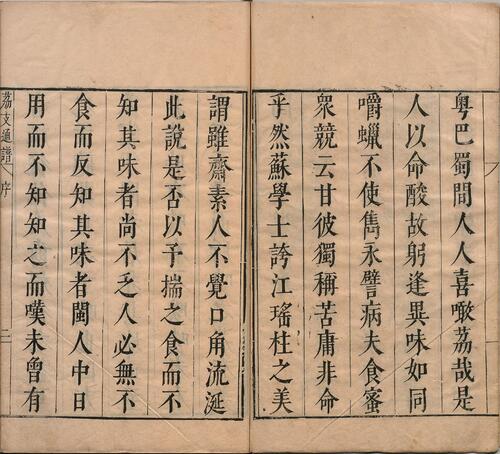 粵巴蜀間人人喜噉荔哉是
人以命酸故躬逢異味如同
嚼蠟不使雋永譬病夫食蜜
衆競云甘彼獨稱苦庸非命
乎然蘇學士誇江瑤柱之美
謂雖齋素人不覺口角流涎
此說是否以予揣之食而不
知其味者尚不乏人必無不
食而反知其味者閩人中日
用而不知知之而嘆未曾有
荔支通譜 序 二